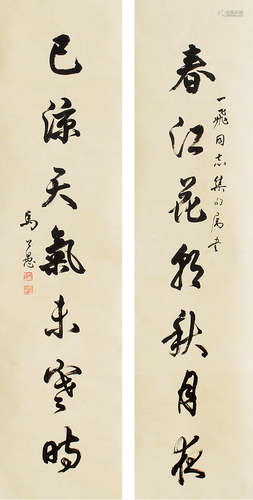 春江花朝秋月夜
一飛同志集句屬書
已涼天氣未寒時
馬公愚